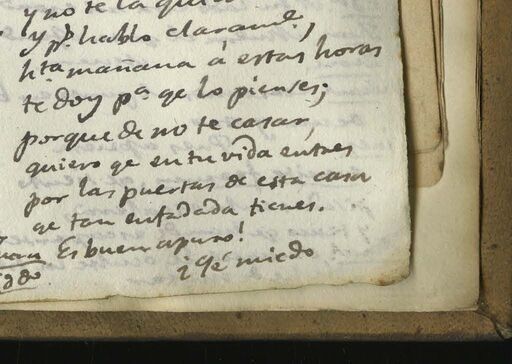 y no te la
y pr. hablo claramte.,
hta. mañana á estas horas
te doy pa. qe lo pienses;
porque de no te casar,
quiero qe en tu vida entres
por las puertas de esta casa
qe tan enfadada tienes.
Es buen apuro!
¡qé miedo